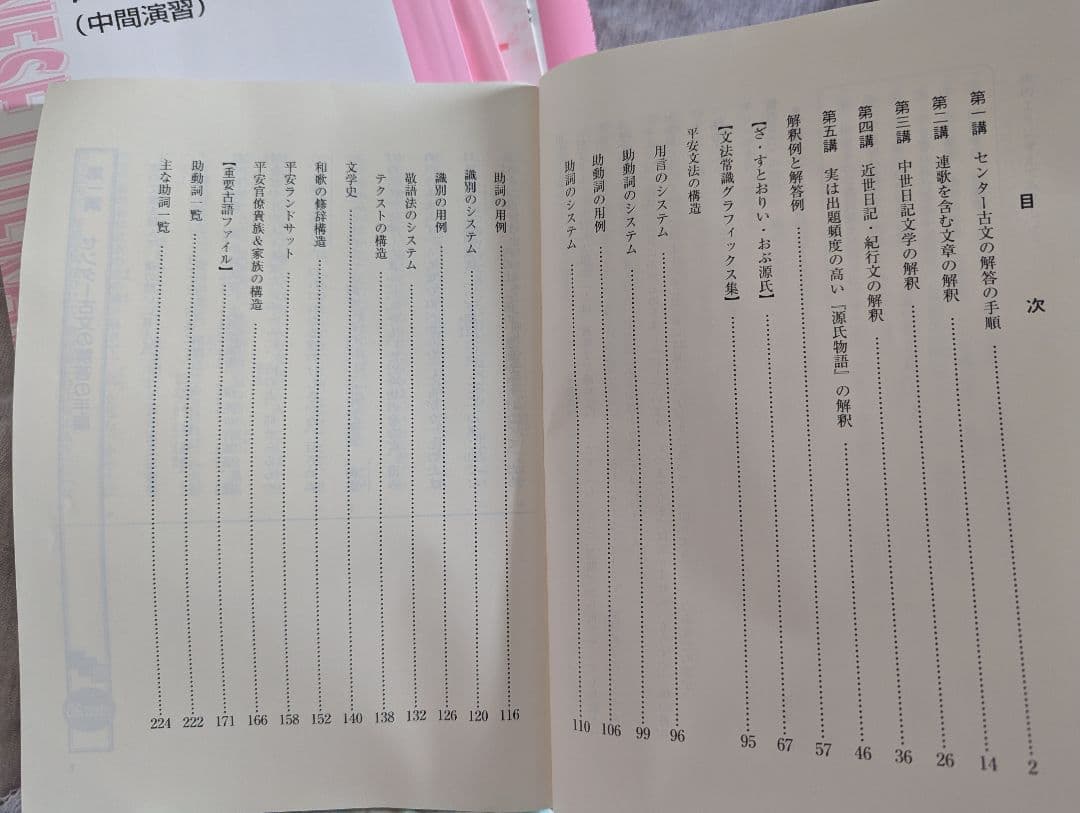 (中間演習)
目次
第一講 センター古文の解答の手順……2
第二講 連歌を含む文章の解釈……14
第三講 中世日記文学の解釈……26
第四講 近世日記・紀行文の解釈……36
第五講 実は出題頻度の高い『源氏物語』の解釈……46
解釈例と解答例……57
【ざ・すとおりい・おぶ源氏】……67
【文法常識グラフィックス集】……95
平安文法の構造
用言のシステム……96
助動詞のシステム……99
助動詞の用例……106
助詞のシステム……110
助詞の用例……116
識別のシステム……120
識別の用例……126
敬語法のシステム……132
テクストの構造……138
文学史……140
和歌の修辞構造……152
平安ランドサット……158
平安官僚貴族&家族の構造……166
【重要古語ファイル】……171
助動詞一覧……222
主な助詞一覧……224